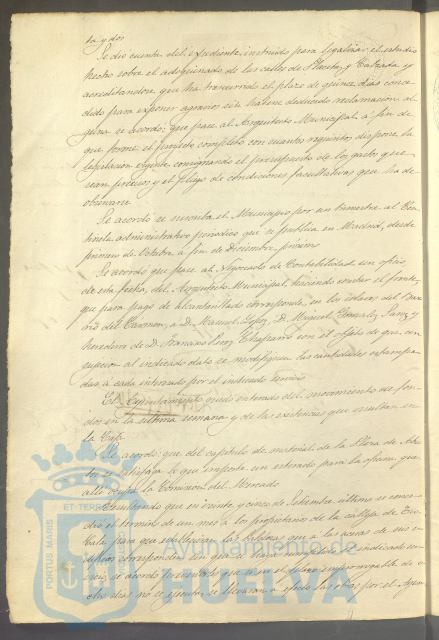 ta y dos
Se dió cuenta del espediente instruido para legalizar el estudio
hecho sobre el adoquinado de las calles de Placeta, y Calzada y
acreditandose que ha trascurrido el plazo de quince dias conce
dido para exponer agravios sin haberse deducido reclamacion al
guna se acordó: que pase al Arquitecto Municipal á fin de
que forme el proyecto completo con cuantos requisitos dispone la
legislacion vigente consignando el presupuesto de los gastos que
sean precisos y el pliego de condiciones facultativas que ha de
observarse.
Se acordó se suscriba el Municipio por un trimestre al Cen
tinela administrativo periodico que se publica en Madrid, desde
primero de Octubre á fin de Diciembre próximo
Se acordó que pase al Negociado de Contabilidad un oficio
de esta fecha, del Arquitecto Municipal, haciendo constar el frente,
que para pago de alcantarillado corresponde, en los solares del
del Carmen, á D. Manuel Lopez, D. Miguel Gonzalez Sanz, y
herederos de D. Francisco Perez Chaparro con el objeto de que, con
sugecion al indicado dato se modifiquen las cantidades estampa
das á cada interesado por el indicado
El Ayuntamiento quedó enterado del movimiento de fon
dos en la última semana y de las existencias que resultan en
la Caja.
Se acordó: que del capítulo de material de la Plaza de Aba
tos se satisfaga lo que importe un enterado para la oficina que
alli ocupa la Comision del Mercado
Resultando que en veinte y cinco de Setiembre último se conce
dió el termino de un mes á los propietarios de la calleja de
para que
dificios correspondientes se acordó
se acordó
cho dias no se ejecuta, se llevaran á efecto las obras por el Ayun
PORTUS MARIS
ET TERRAE
CUSTODIA
Ayuntamiento de
HUELVA